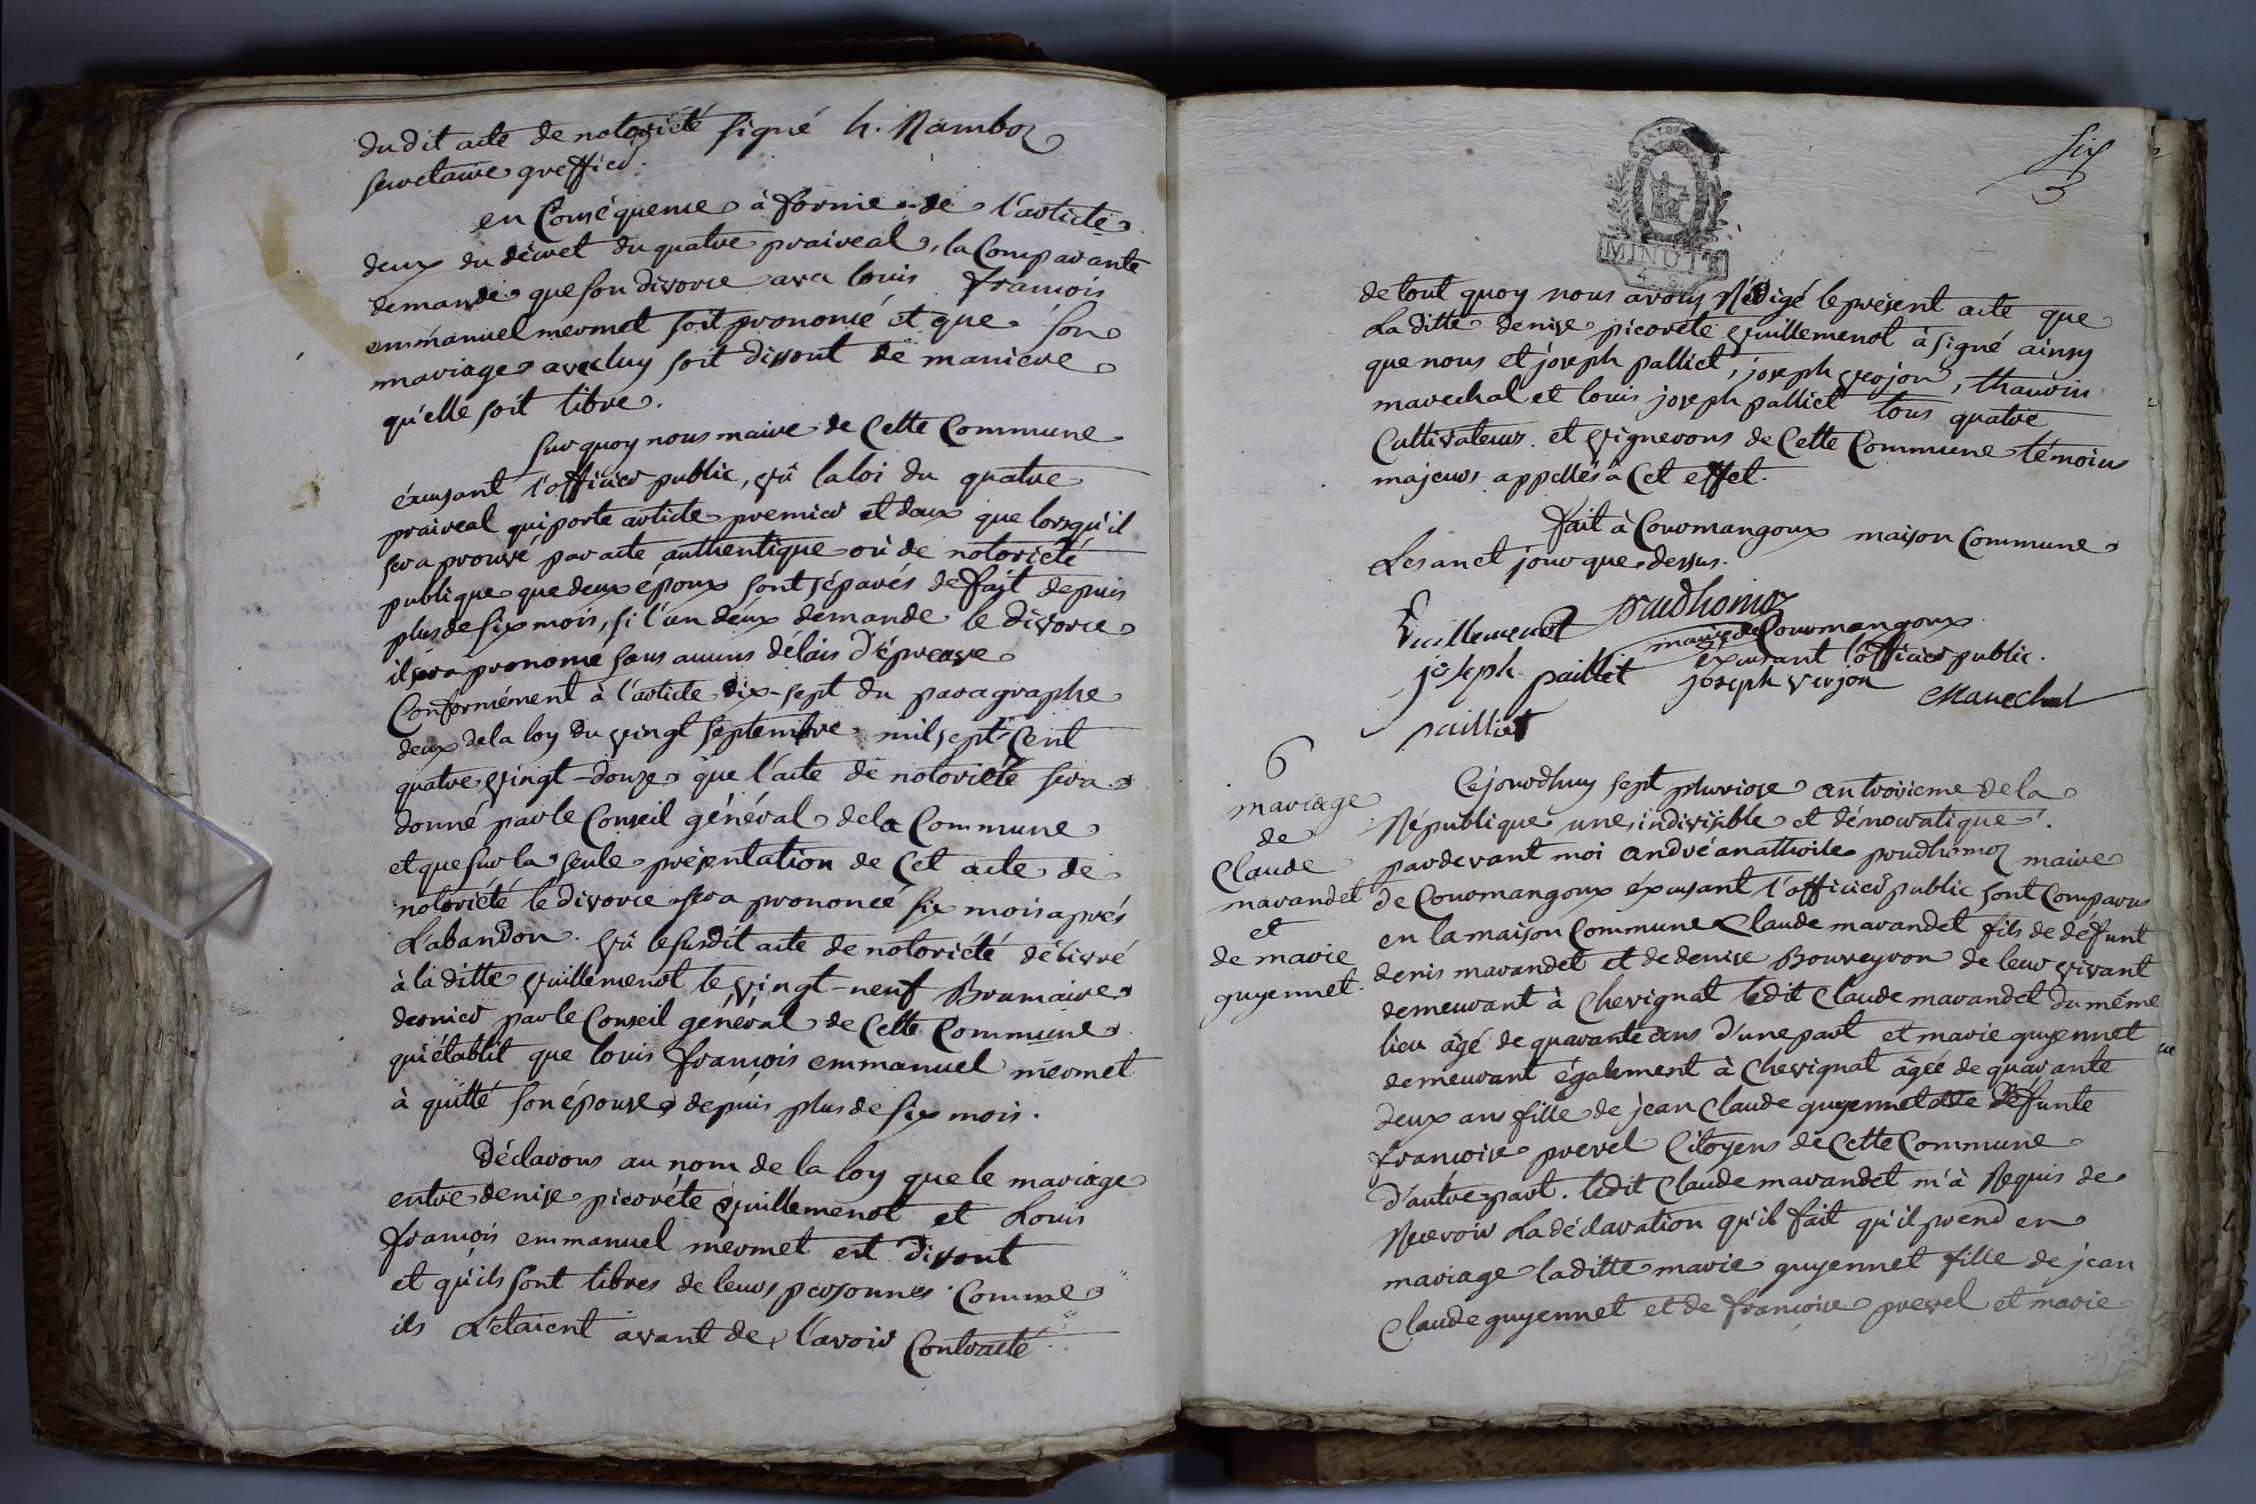 dudit acte de notorieté signé h. Ramboz
secretaire greffier.
en Conséquence à forme de l'article
deux du décret du quatre praireal, la Comparante
demande que son divorce avec louis francois
emmanuel mermet soit prononcé et que son
mariage avec luy soit dissout de maniere
qu'elle soit libre.
sur quoy nous maire de Cette Commune
éxerçant l'officier public, vû la loi du quatre
praireal qui porte article premier et deux que lorsqu'il
sera prouvé par acte authentique où de notorieté
publique que deux époux sont séparés de fait depuis
plus de six mois, si l'un deux demande le divorce
il sera prononcé sans aucuns délais d'épreuve
Conformément à l'article dix-sept du paragraphe
deux de la loy du vingt septembre mil sept Cent
quatre vingt-douze que l'acte de notorieté sera
donné par le Conseil général de la Commune
et que sur la seule présentation de Cet acte de
notoriété le divorce sera prononcé six mois aprés
L'abandon. vû le susdit acte de notoriété délivré
à la ditte vuillemenot le vingt-neuf Brumaire
dernier par le Conseil général de Cette Commune
qui établit que louis françois emmanuel mermet
à quitté son épouse depuis plus de six mois.
Déclarons au nom de la loy que le mariage
entre denise picoréte vuillemenot et Louis
françois emmanuel mermet est dissout
et qu'ils sont libres de leurs personnes Comme
ils L'etaient avant de l'avoir Contracté
six
3
MINUTE
de tout quoy nous avons Rédigé le présent acte que
La ditte denise picoréte vuillemenot à signé ainsy
que nous et joseph palliet, joseph verjon, thauvin
marechal et louis joseph palliet tous quatre
Cultivateurs et vignerons de Cette Commune témoins
majeurs appellés à Cet effet.
fait à Courmangoux maison Commune
Les an et jour que dessus.
Vuillemenot prudhomoz
maire de Courmangoux
éxerçant l'officier public.
joseph paillet joseph verjon Marechal
pailliet
6
mariage
de
Claude
marandet
et
de marie
guyennet.
Cejourdhuy sept pluviose an troisieme de la
République une, indivisible et démocratique.
pardevant moi andré anathoile prudhomoz maire
de Courmangoux éxerçant l'officier public sont Comparus
en la maison Commune Claude marandet fils de défunt
denis marandet et de denise Bouveyron de leur vivant
demeurant à Chevignat ledit Claude marandet du même
lieu âgé de quarante ans d'une part et marie guyennet
demeurant également à Chevignat âgée de quarante
deux ans fille de jean Claude guyennet et de défunte
françoise prevel Citoyens de Cette Commune
d'autre part. ledit Claude marandet m'à Requis de
Recevoir La déclaration qu'il fait qu'il prend en
mariage laditte marie guyennet fille de jean
Claude guyennet et de françoise prevel et marie